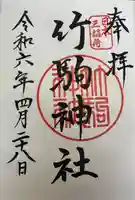 奉拝
日本三稲荷
竹駒神社
令和六年四月二十八日